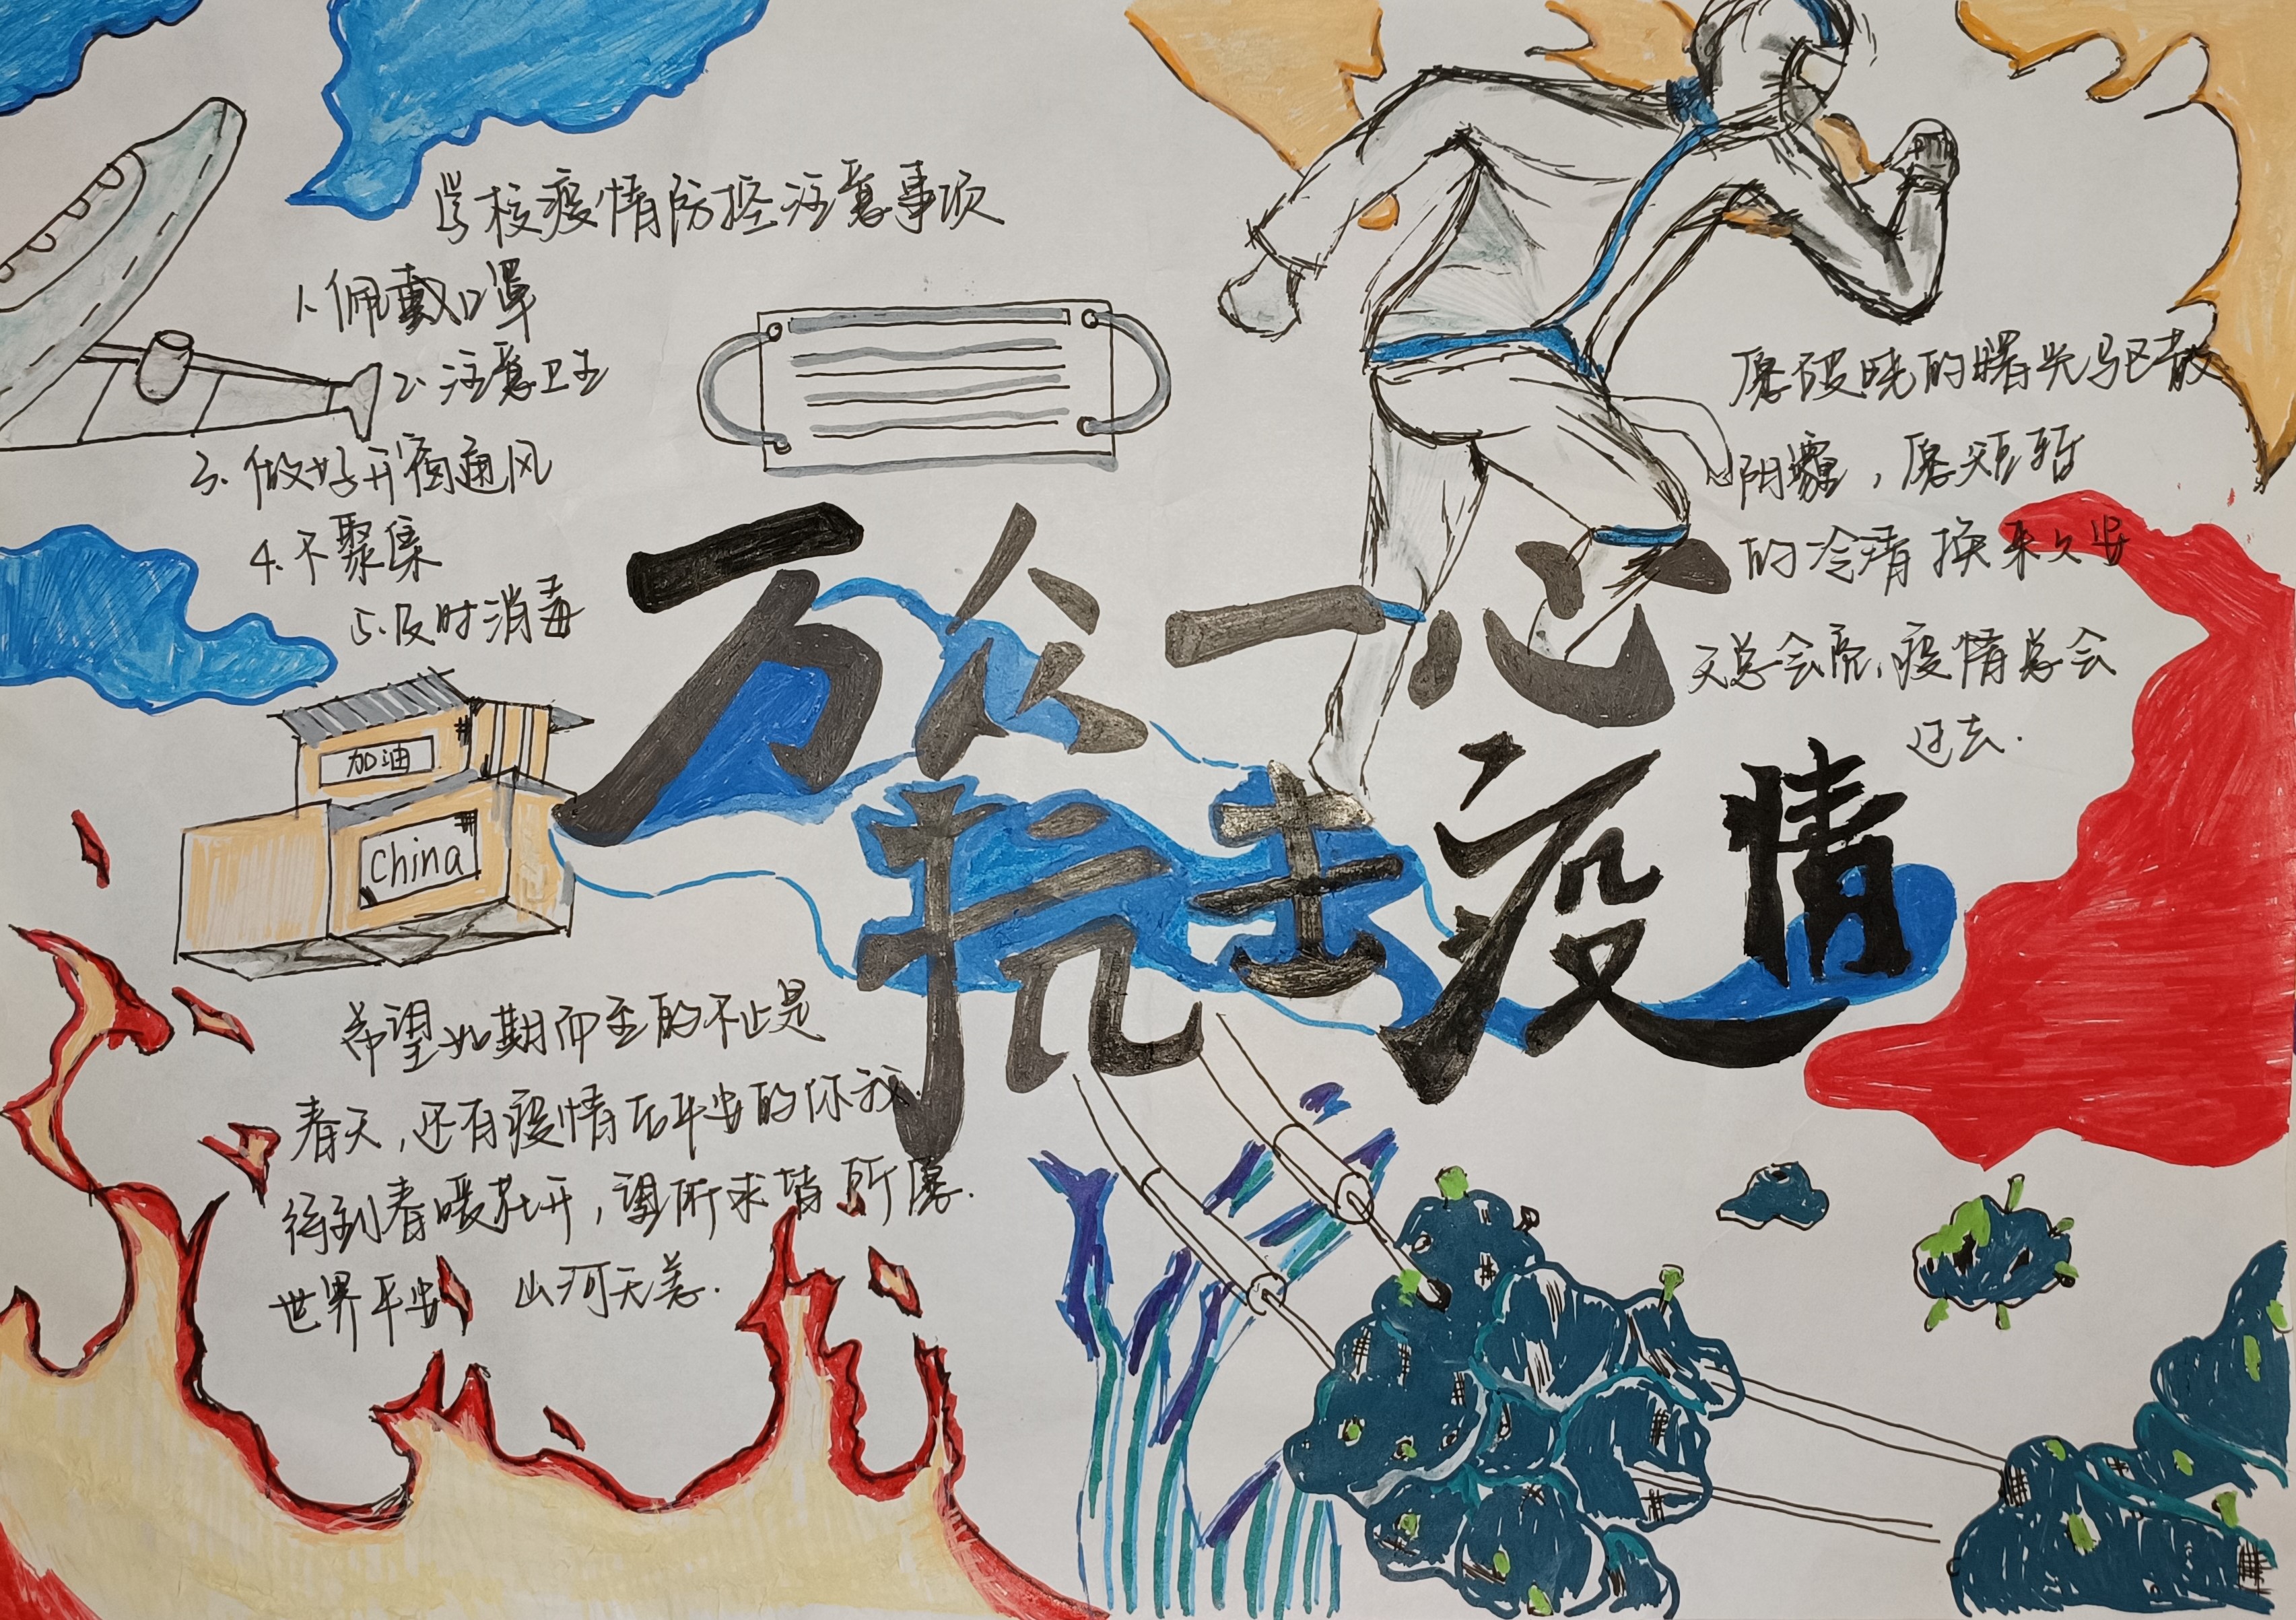 学校疫情防控注意事项
1.佩戴口罩
2.注意卫生
3.做好开窗通风
4.不聚集
5.及时消毒
愿破晓的曙光驱散
阴霾，愿短暂
的冷清换来久安
天总会亮、疫情总会
过去.
万众一心
抗击疫情
加油
China
希望如期而至的不止是
春天,还有疫情后平安的你我.
待到春暖花开,望所求皆所愿.
世界平安 山河无恙.